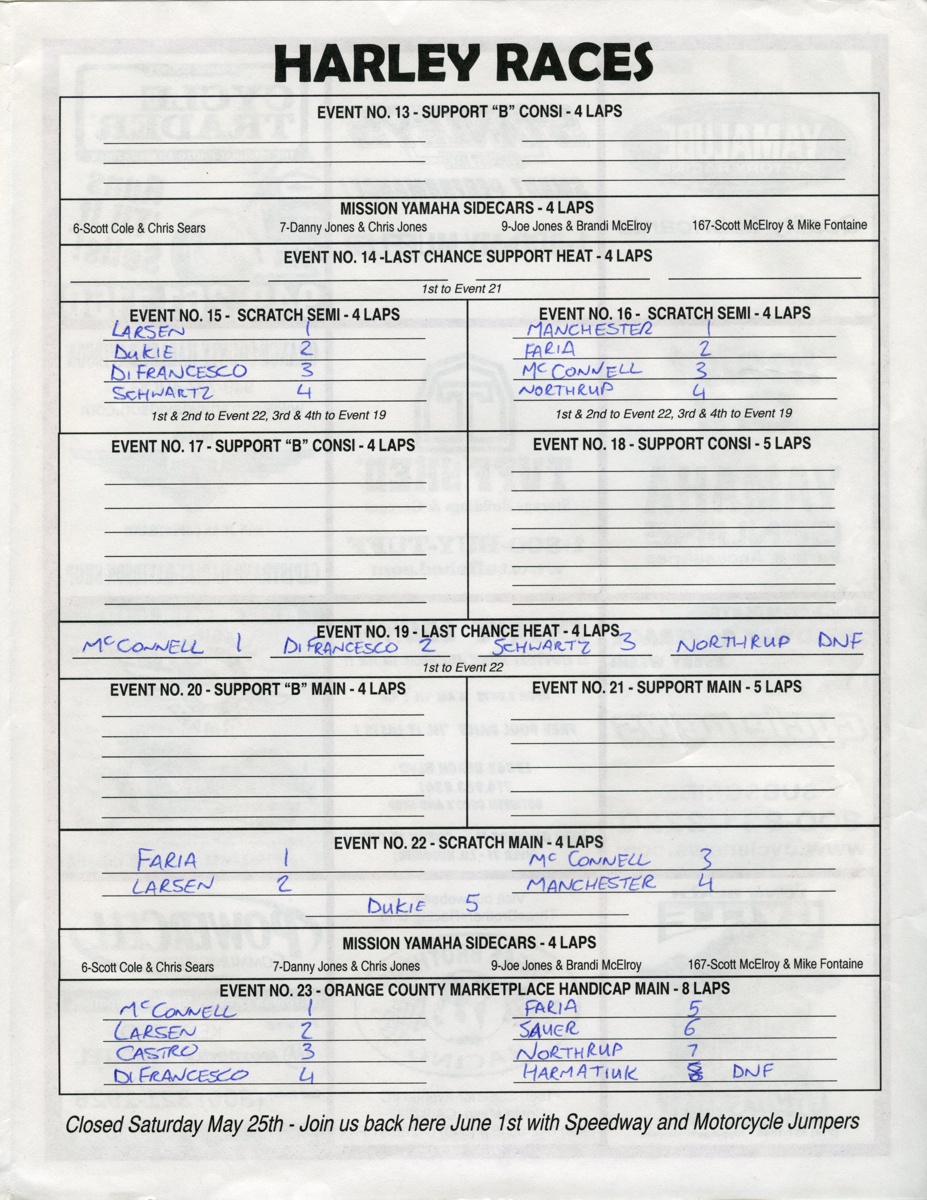 HARLEY RACES
EVENT NO. 13 - SUPPORT "B" CONSI - 4 LAPS
MISSION YAMAHA SIDECARS - 4 LAPS
6-Scott Cole & Chris Sears 7-Danny Jones & Chris Jones 9-Joe Jones & Brandi McElroy 167-Scott McElroy & Mike Fontaine
EVENT NO. 14 -LAST CHANCE SUPPORT HEAT - 4 LAPS
1st to Event 21
EVENT NO. 15 - SCRATCH SEMI - 4 LAPS
LARSEN 1
DUKIE 2
DIFRANCESCO 3
SCHWARTZ 4
1st & 2nd to Event 22, 3rd & 4th to Event 19
EVENT NO. 16 - SCRATCH SEMI - 4 LAPS
MANCHESTER 1
FARIA 2
McCONNELL 3
NORTHRUP 4
1st & 2nd to Event 22, 3rd & 4th to Event 19
EVENT NO. 17 - SUPPORT "B" CONSI - 4 LAPS
EVENT NO. 18 - SUPPORT CONSI - 5 LAPS
EVENT NO. 19 - LAST CHANCE HEAT - 4 LAPS
McCONNELL 1 DIFRANCESCO 2 SCHWARTZ 3 NORTHRUP DNF
1st to Event 22
EVENT NO. 20 - SUPPORT "B" MAIN - 4 LAPS
EVENT NO. 21 - SUPPORT MAIN - 5 LAPS
EVENT NO. 22 - SCRATCH MAIN - 4 LAPS
FARIA 1
LARSEN 2
McCONNELL 3
MANCHESTER 4
DUKIE 5
MISSION YAMAHA SIDECARS - 4 LAPS
6-Scott Cole & Chris Sears 7-Danny Jones & Chris Jones 9-Joe Jones & Brandi McElroy 167-Scott McElroy & Mike Fontaine
EVENT NO. 23 - ORANGE COUNTY MARKETPLACE HANDICAP MAIN - 8 LAPS
McCONNELL 1
LARSEN 2
CASTRO 3
DIFRANCESCO 4
FARIA 5
SAUER 6
NORTHRUP 7
HARMATIUK 8 DNF
Closed Saturday May 25th - Join us back here June 1st with Speedway and Motorcycle Jumpers